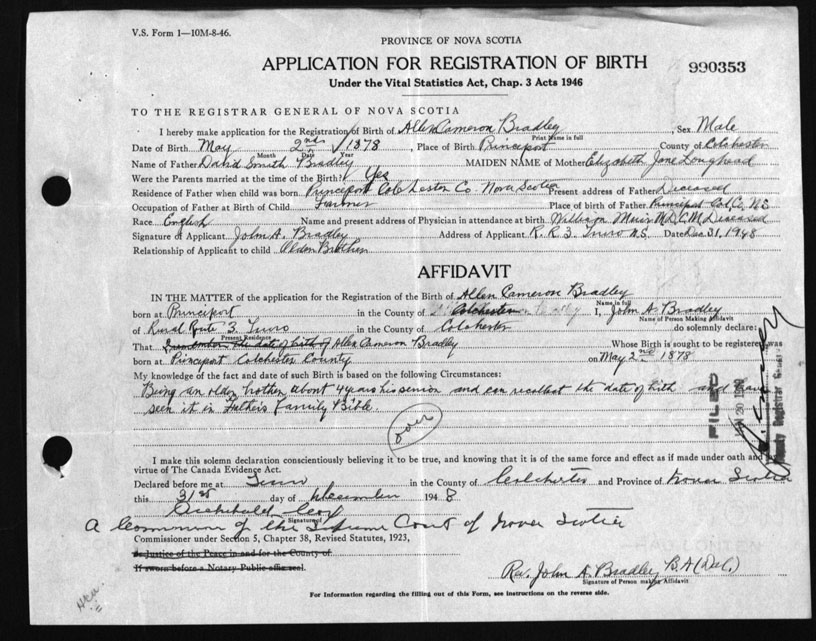 V.S. Form 1—10M-8-46.
PROVINCE OF NOVA SCOTIA
APPLICATION FOR REGISTRATION OF BIRTH
990353
Under the Vital Statistics Act, Chap. 3 Acts 1946
TO THE REGISTRAR GENERAL OF NOVA SCOTIA
I hereby make application for the Registration of Birth of Allen Cameron Bradley, Sex Male
Print Name in full
Date of Birth May 2nd 1878, Place of Birth Princeport County of Colchester
Month Date Year
Name of Father David Smith Bradley MAIDEN NAME of Mother Elizabeth Jane Longhead
Were the Parents married at the time of Birth? Yes
Residence of Father when child was born Princeport Colchester Co. Nova Scotia Present address of Father Deceased
Occupation of Father at Birth of Child Farmer Place of birth of Father Princeport Col. Co. N.S
Race English Name and present address of Physician in attendance at birth William Muir M.D.C.M. Deceased
Signature of Applicant John A. Bradley Address of Applicant R.R 3. Truro N.S. Date Dec 31, 1948
Relationship of Applicant to child Older Brother
AFFIDAVIT
IN THE MATTER of the application for the Registration of the Birth of Allen Cameron Bradley
Name in full
born at Princeport in the County of Colchester I, John A. Bradley
Name of Person Making Affidavit
of Rural Route 3. Truro in the County of Colchester do solemnly declare:
Present Residence
That I remember the date of birth of Allen Cameron Bradley Whose Birth is sought to be registered was
born at Princeport Colchester County on May 2nd 1878
My knowledge of the fact and date of such Birth is based on the following Circumstances:
Being an older brother about 4 years his senior and can recollect the date of birth and have
seen it in Fathers Family Bible.
over
FILED
Deputy Registrar General
I make this solemn declaration conscientiously believing it to be true, and knowing that it is of the same force and effect as if made under oath and by
virtue of The Canada Evidence Act.
Declared before me at Truro in the County of Colchester and Province of Nova Scotia
this 31st day of December 1948
Archibald
Signature of
A Commissioner of the Supreme Court of Nova Scotia
Commissioner under Section 5, Chapter 38, Revised Statutes, 1923,
or Justice of the Peace in and for the County of
If sworn before a Notary Public affix seal.
Rev. John A. Bradley B.A (Dal.)
Signature of Person making Affidavit
For Information regarding the filling out of this Form, see instructions on the reverse side.